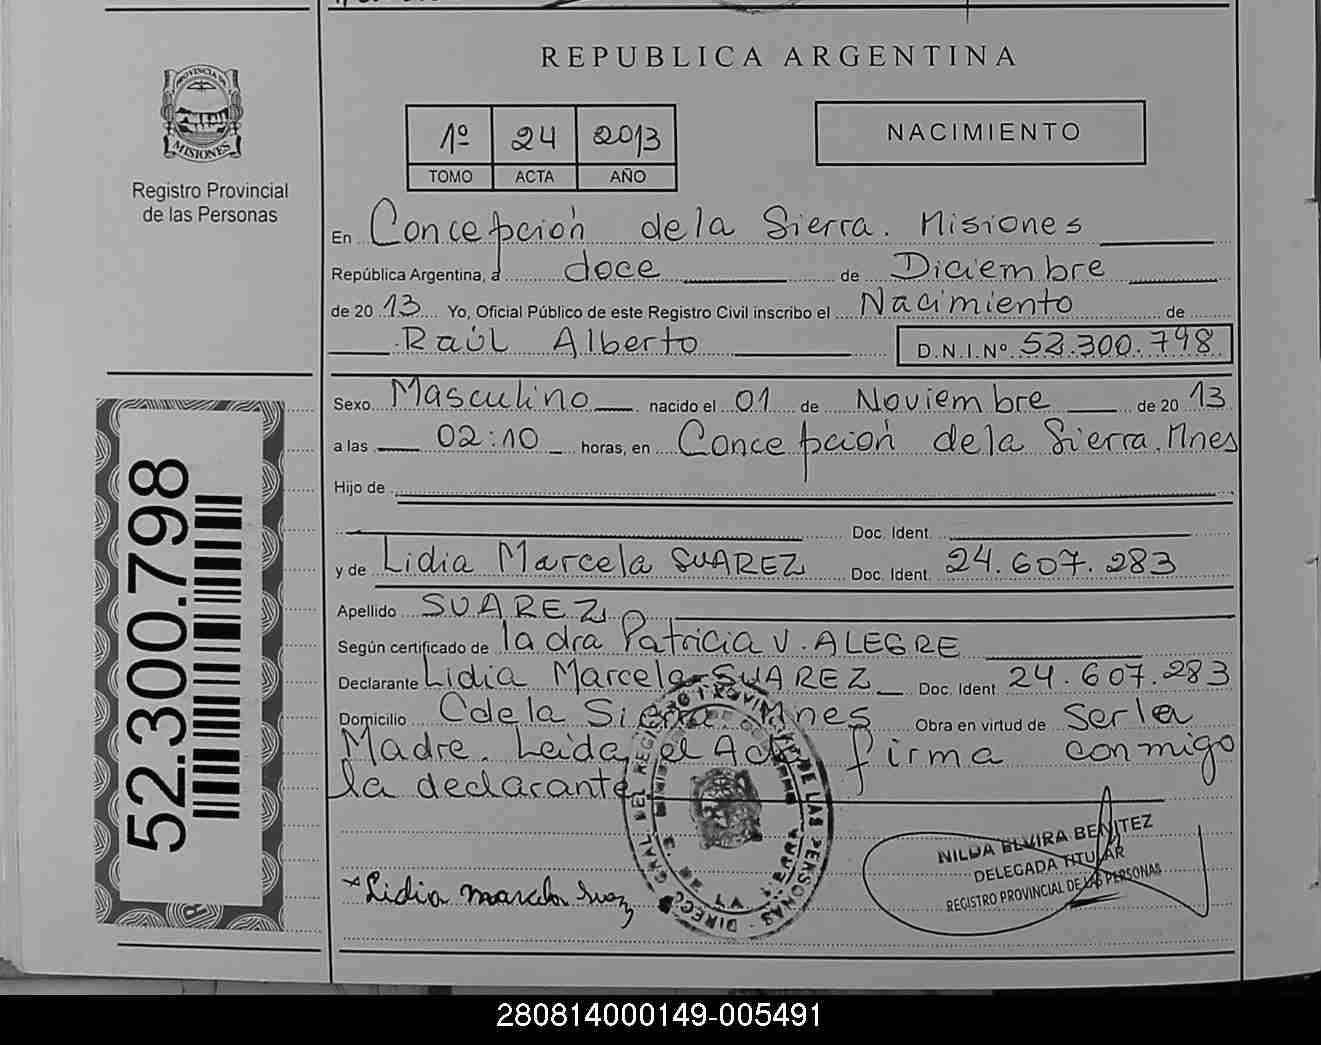 REPUBLICA ARGENTINA
PROVINCIA DE
MISIONES
Registro Provincial
de las Personas
1º 24 2013
TOMO ACTA AÑO
NACIMIENTO
En Concepción de la Sierra. Misiones
República Argentina, a doce de Diciembre
de 20 13 Yo, Oficial Público de este Registro Civil inscribo el Nacimiento de
Raúl Alberto D.N.I.Nº 52.300.798
Sexo Masculino nacido el 01 de Noviembre de 20 13
a las 02:10 horas, en Concepción de la Sierra. Mnes
Hijo de
Doc. Ident.
y de Lidia Marcela SUAREZ Doc. Ident. 24.607.283
Apellido SUAREZ
Según certificado de la dra Patricia V. ALEGRE
Declarante Lidia Marcela SUAREZ Doc. Ident. 24.607.283
Domicilio C de la Sierra. Mnes Obra en virtud de Ser la
Madre. Leída el Acta firma conmigo
la declarante
52.300.798
NILDA ELVIRA BENITEZ
DELEGADA TITULAR
REGISTRO PROVINCIAL DE LAS PERSONAS
Lidia marcela Suarez
280814000149-005491